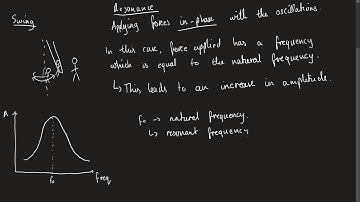 Swing
Resonance
Applying forces in-phase with the oscillations.
In this case, force applied has a frequency
which is equal to the natural frequency.
↳ This leads to an increase in amplitude.
A
f₀
freq
f₀ → natural frequency.
↳ resonant frequency